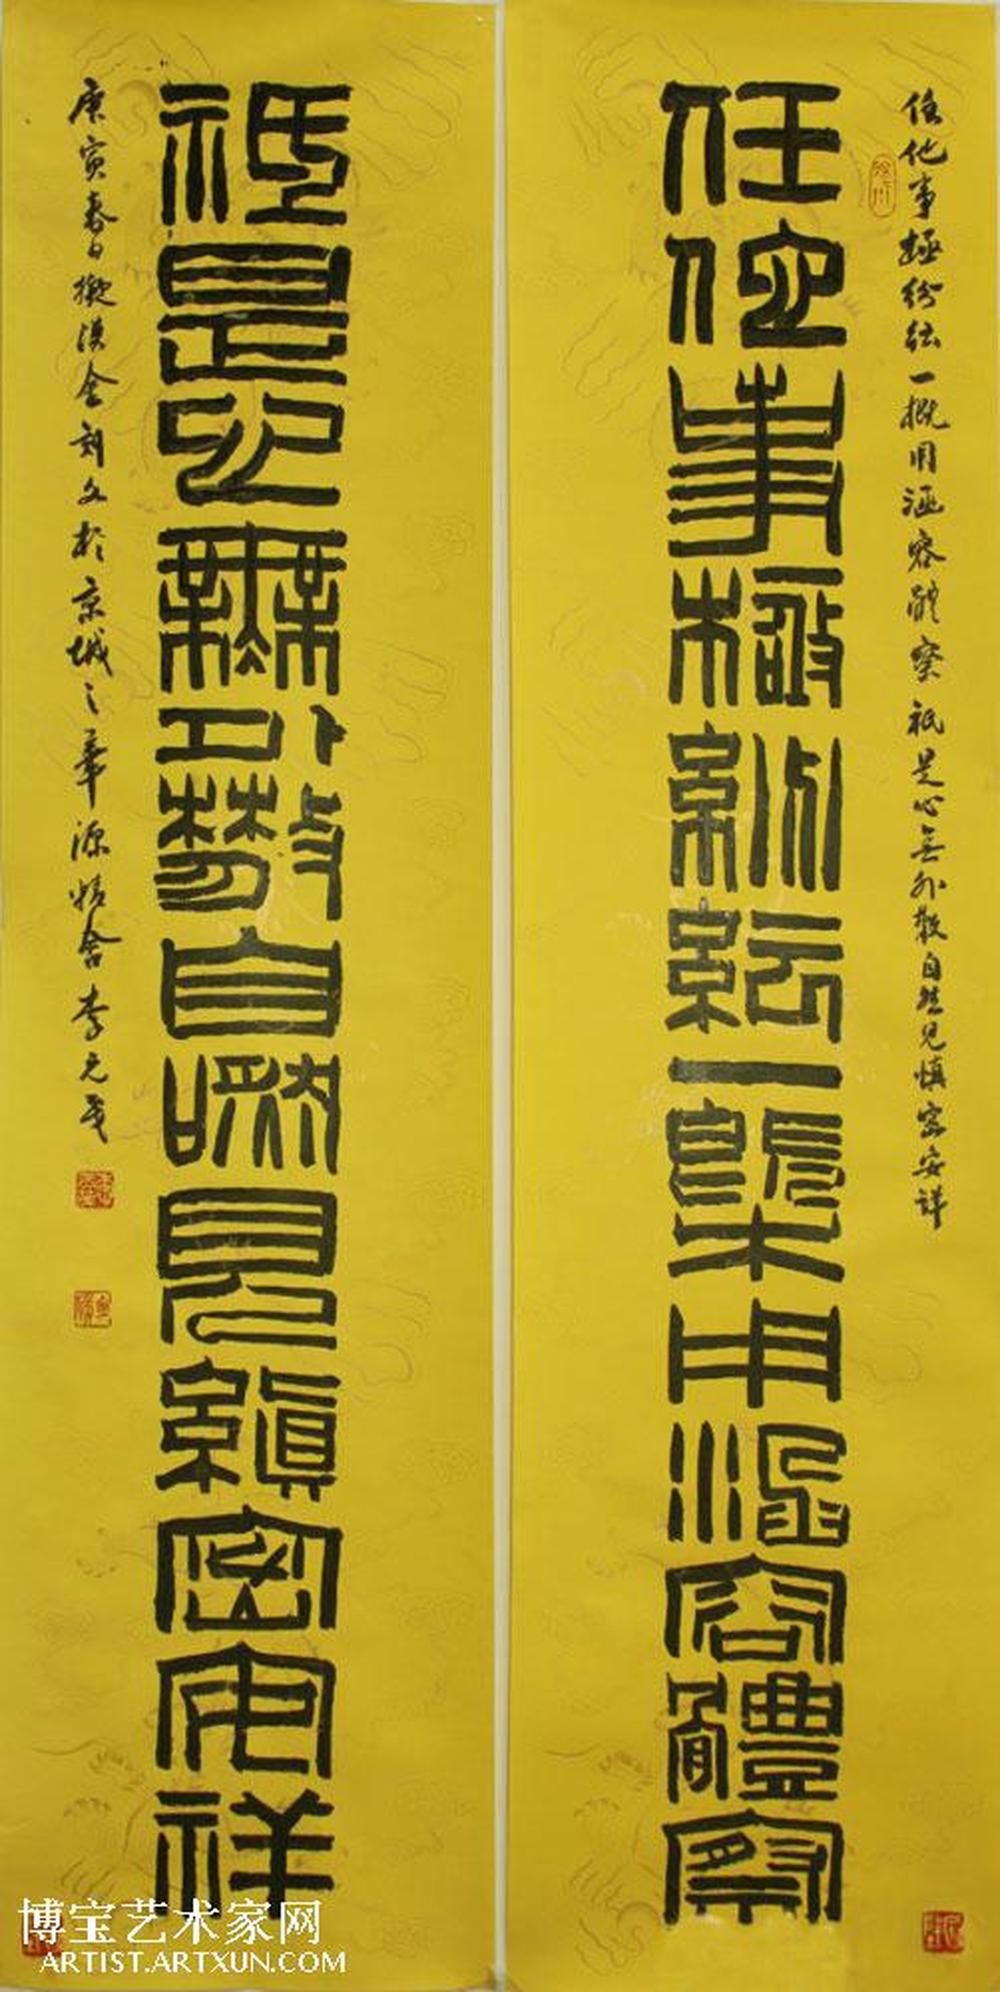 任他事極紛紜一概用涵容體察祇是心無外散自然見慎密安詳
任佗事極紛紜一槩用涵容體察
祇是心無外散自然見縝密安祥
庚寅春日擬漢金刻文於京城之華源精舍李元
博宝艺术家网
ARTIST.ARTXUN.COM